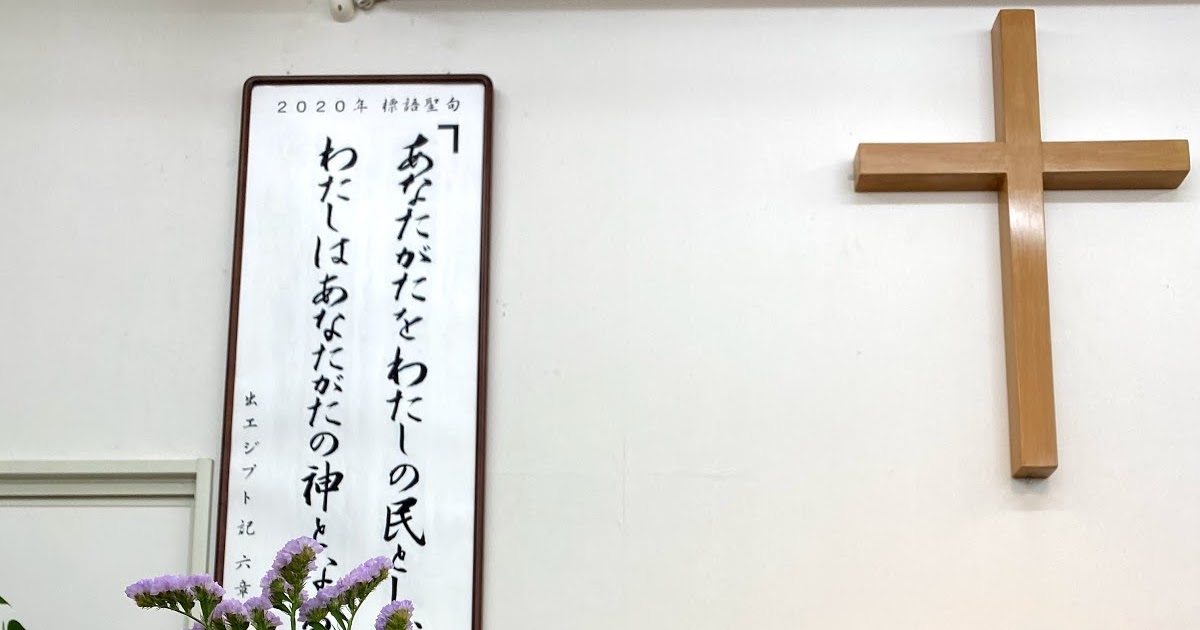 2020年 標語聖句
「あなたがたをわたしの民とし、
わたしはあなたがたの神とな
出エジプト記 六章